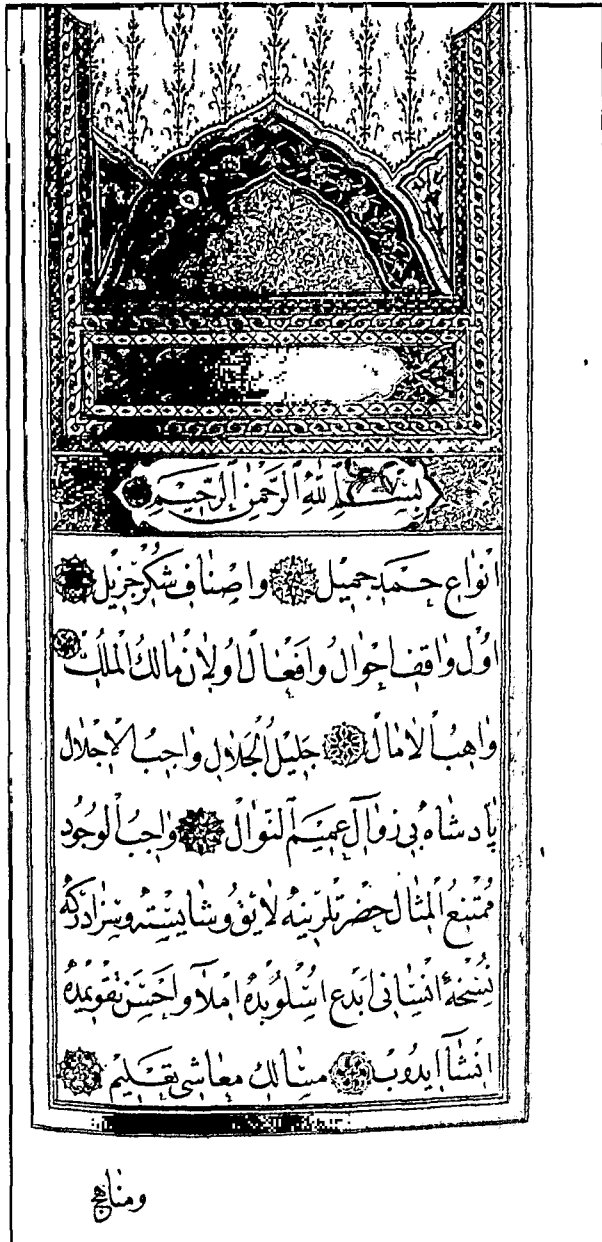 بِسْمِ اللّٰهِ الرَّحْمٰنِ الرَّحِيمِ
انواع حمد جميل واصناف شكر جزيل
اول واقف احوال وافعال اولان مالك الملك
واهب الامال جليل الجلال واجب الاجلال
پادشاه بى زوال عميم النوال واجب الوجود
ممتنع المثال حضرتلرينه لايق وشايسته وسزادركه
نسخۀ انسانى ابدع اسلوبده املا واحسن تقويمده
انشا ايدوب مسالك معاشى تعليم
ومناهج